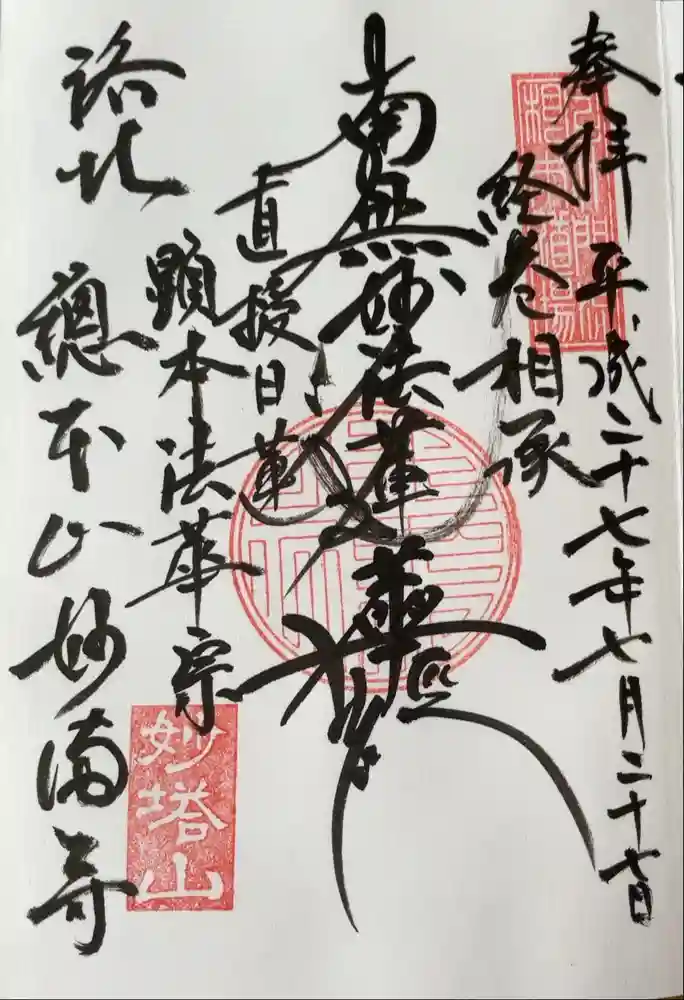 奉拝 平成二十七年七月二十七日
経巻相承
南無妙法蓮華経
直授日蓮
顕本法華宗
洛北 總本山妙満寺
妙塔山